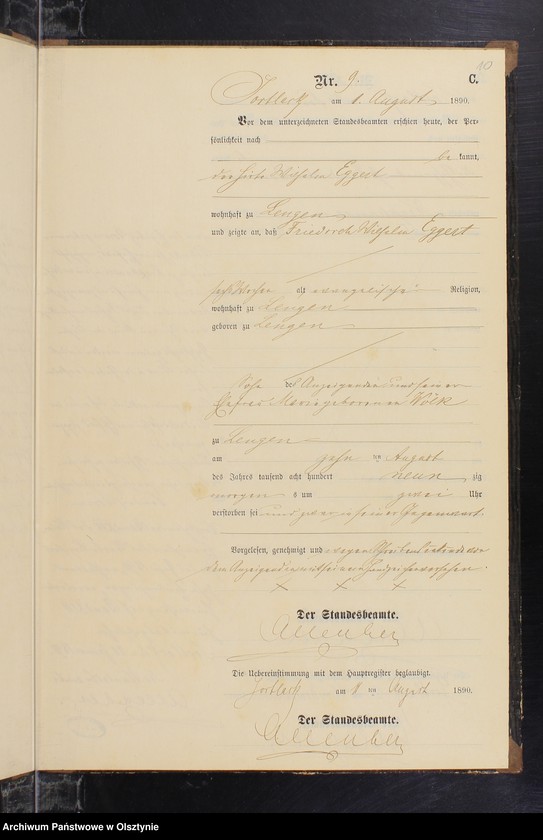 10
Nr. 9. C.
am August 1890.
Vor dem unterzeichneten Standesbeamten erschien heute, der Per-
sönlichkeit nach
be kannt,
Wilhelm Eggert
wohnhaft zu Lengen
und zeigte an, daß Friedrich Wilhelm Eggert
sechs Wochen alt evangelischer Religion,
wohnhaft zu Lengen
geboren zu Lengen
Sohn des Anzeigenden und seiner
Marie geborenen Wölk
zu Lengen
am zehn ten August
des Jahres tausend acht hundert neun zig
morgen s um zwei Uhr
verstorben sei und zwar in seiner Gegenwart.
Vorgelesen, genehmigt und wegen
dem Anzeigenden mit seinem Handzeichen versehen.
× × ×
Der Standesbeamte.
Die Uebereinstimmung mit dem Hauptregister beglaubigt.
am ten August 1890.
Der Standesbeamte.
Archiwum Państwowe w Olsztynie